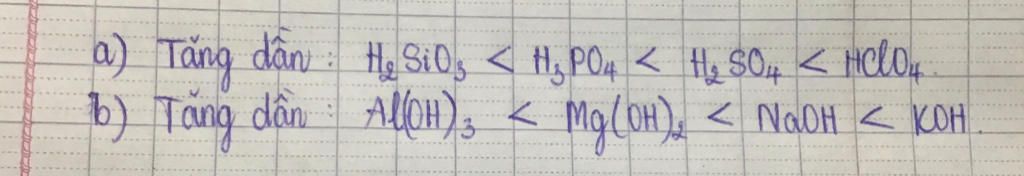 a) Tăng dần: H₂SiO₃ < H₃PO₄ < H₂SO₄ < HClO₄.
b) Tăng dần: Al(OH)₃ < Mg(OH)₂ < NaOH < KOH.